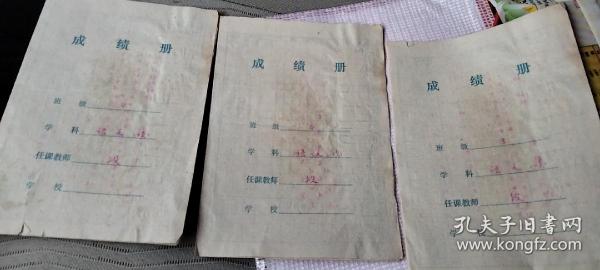 成绩册
班级
学科 语文
任课教师 段
学校
成绩册
班级
学科 语文
任课教师 段
学校
成绩册
班级
学科 语文
任课教师 段
学
孔夫子旧书网
www.kongfz.com